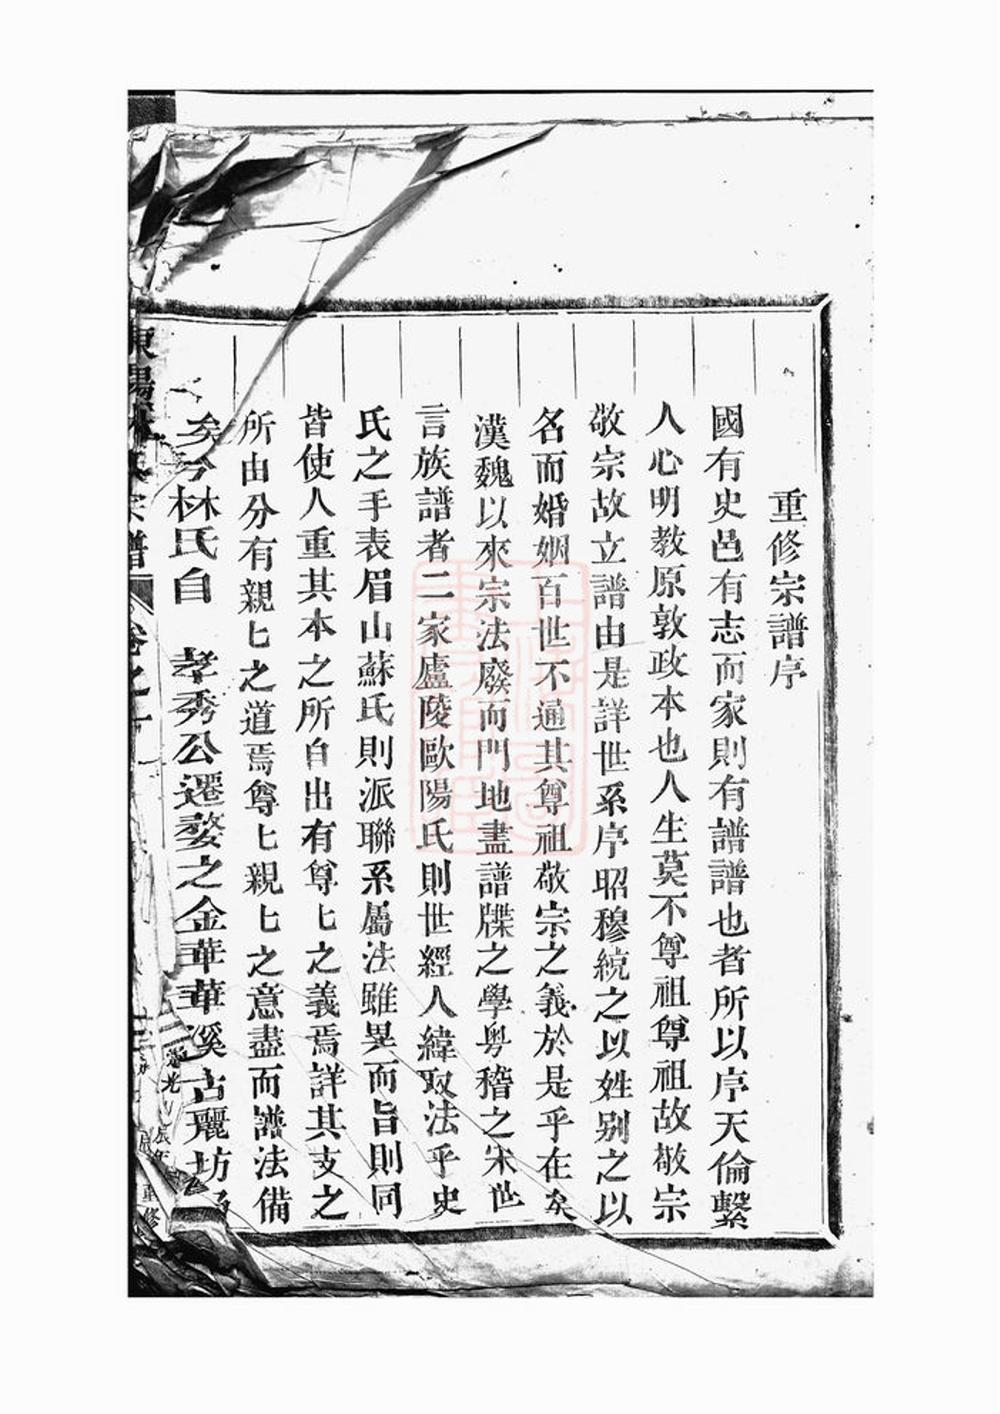 重修宗譜序
國有史邑有志而家則有譜譜也者所以序天倫繫
人心明教原敦政本也人生莫不尊祖尊祖故敬宗
敬宗故立譜由是詳世系序昭穆統之以姓别之以
名而婚姻百世不通其尊祖敬宗之義於是乎在矣
漢魏以來宗法廢而門地畫譜牒之學粤稽之宋世
言族譜者二家廬陵歐陽氏則世經人緯取法乎史
氏之手表眉山蘇氏則派聯系屬法雖異而旨則同
皆使人重其本之所自出有尊匕之義焉詳其支之
所由分有親匕之道焉尊匕親匕之意盡而譜法備
矣今林氏自 孝秀公遷婺之金華華溪古麗坊
東陽林氏宗譜 卷之
重修